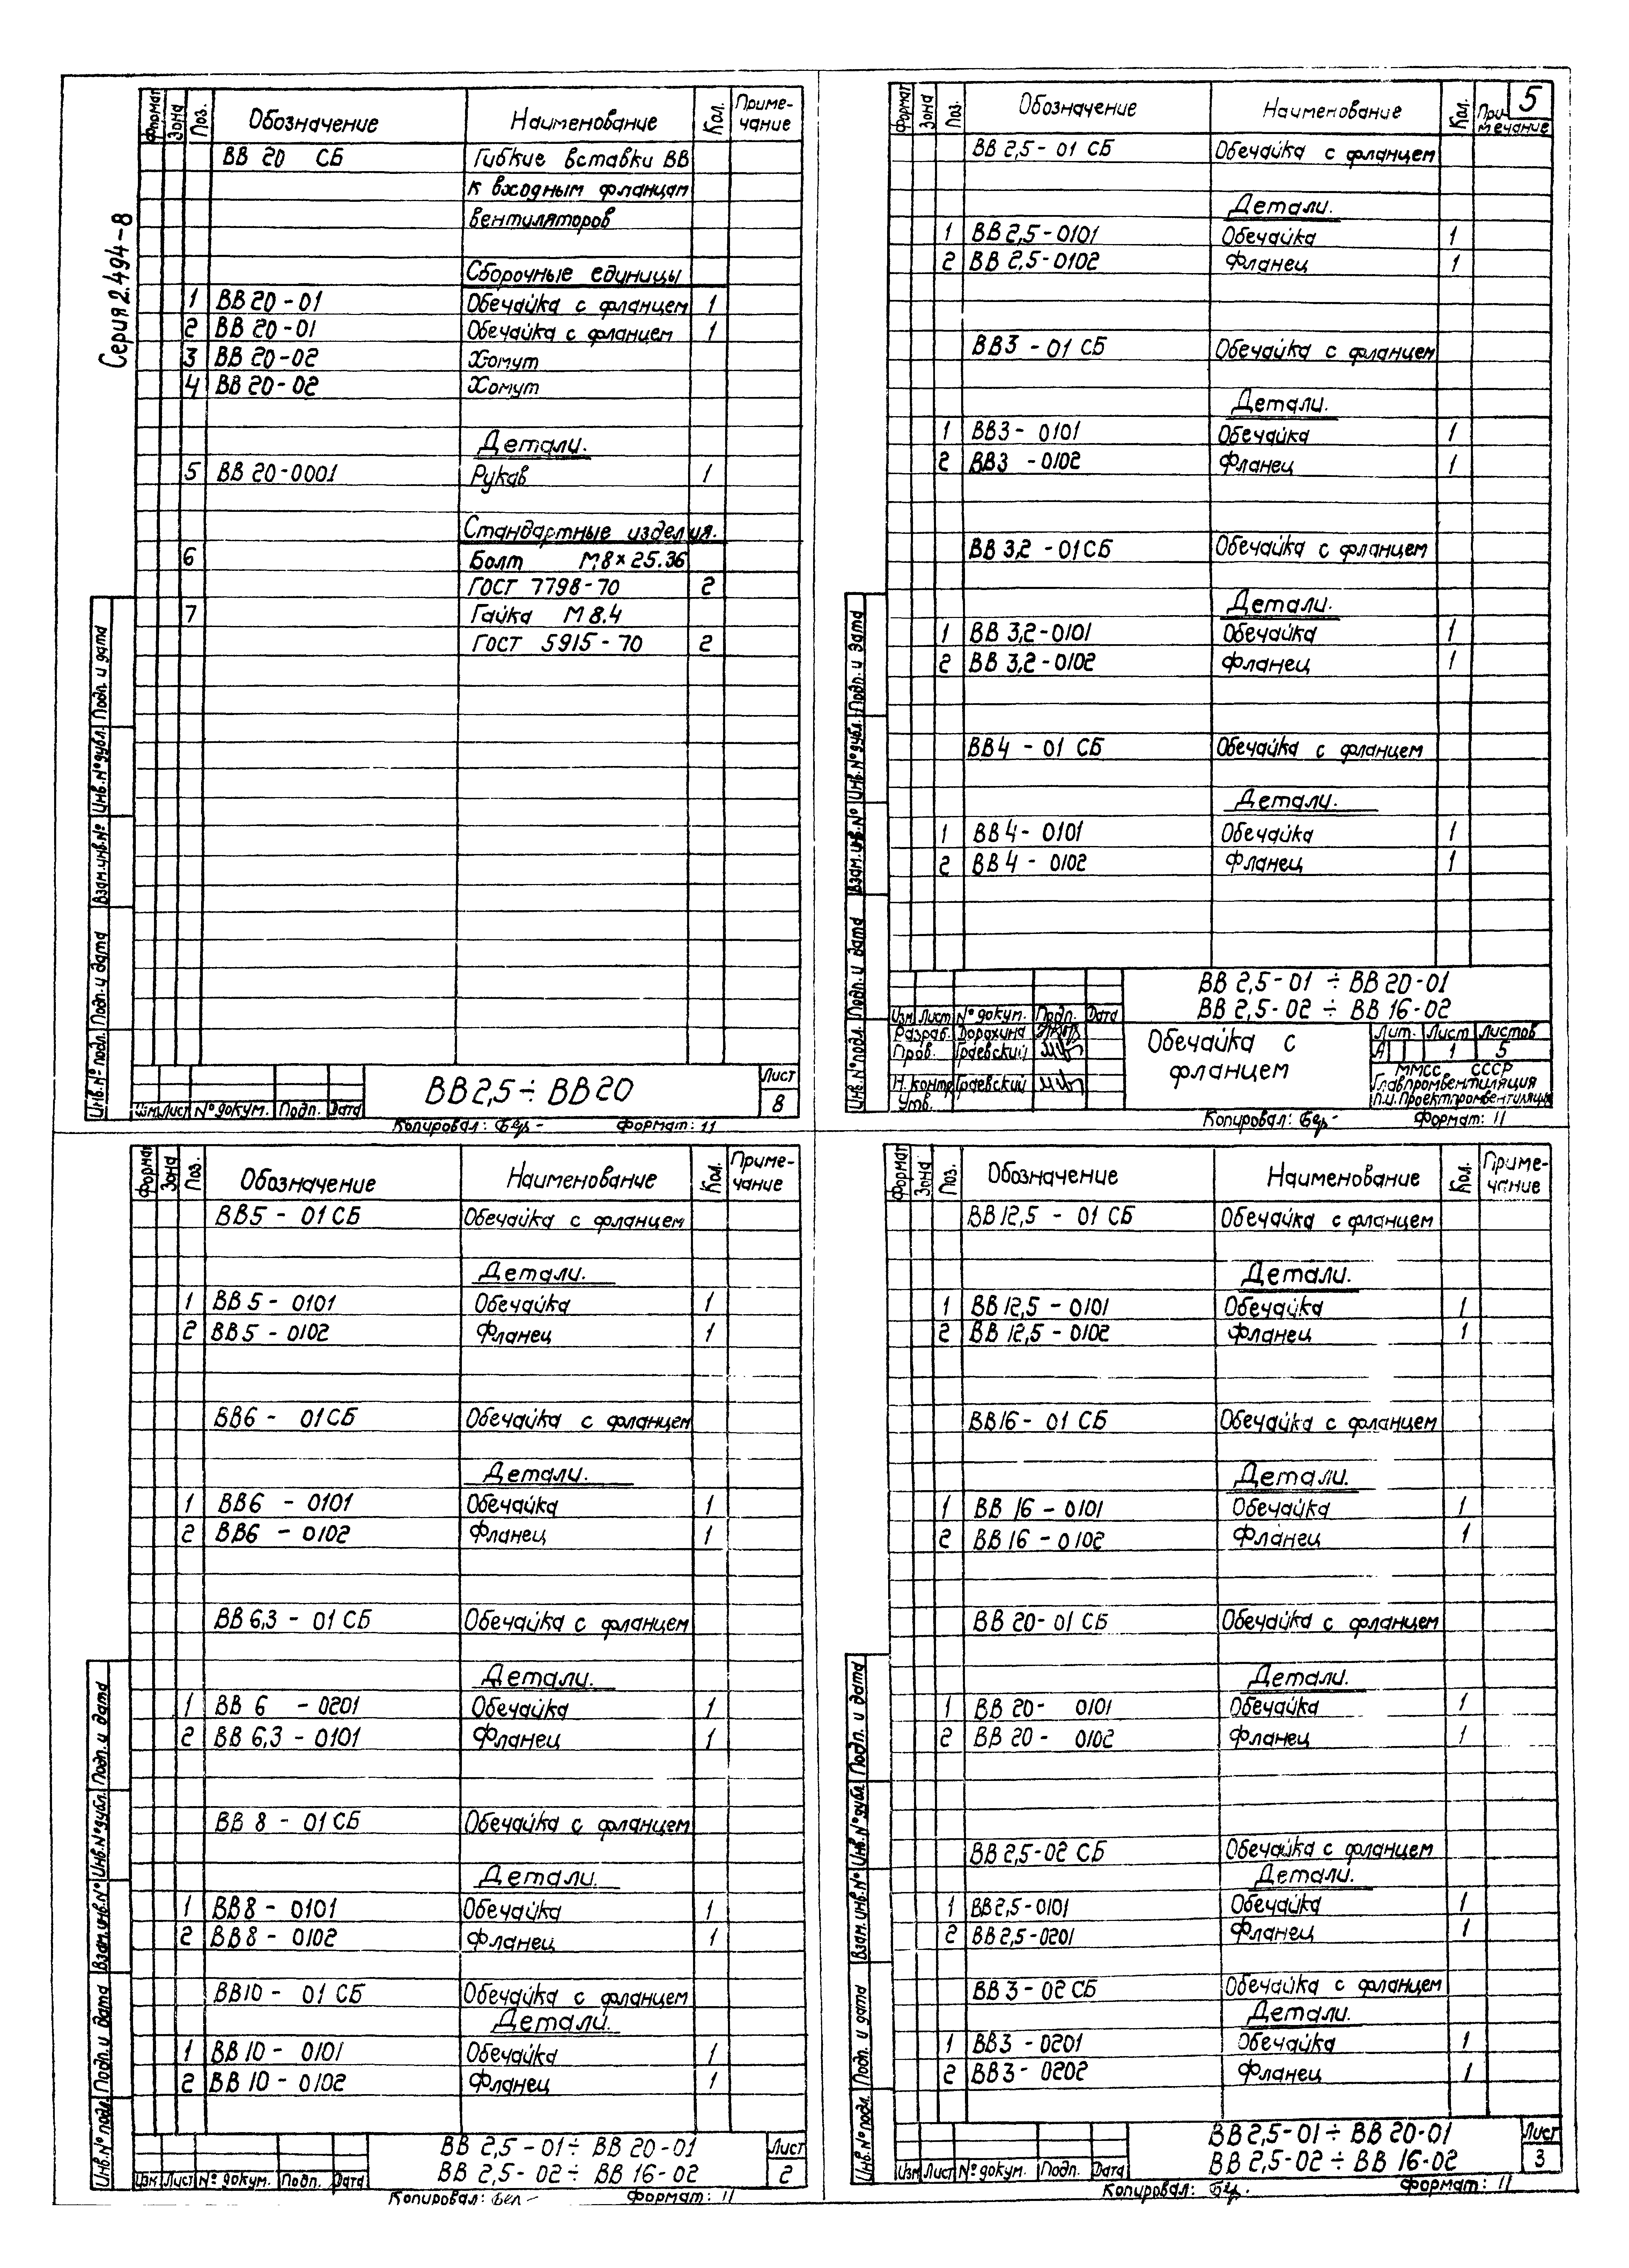 Серия 2.494-8
Формат Зона Поз. Обозначение Наименование Кол. Приме-
чание
ВВ 20 СБ Гибкие вставки ВВ
к входным фланцам
вентиляторов
Сборочные единицы
1 ВВ 20-01 Обечайка с фланцем 1
2 ВВ 20-01 Обечайка с фланцем 1
3 ВВ 20-02 Хомут
4 ВВ 20-02 Хомут
Детали.
5 ВВ 20-0001 Рукав 1
Стандартные изделия.
6 Болт М8×25.36
ГОСТ 7798-70 2
7 Гайка М 8.4
ГОСТ 5915-70 2
Инв.№ подл. Подп. и дата Взам.инв.№ Инв.№ дубл. Подп. и дата
Изм. Лист № докум. Подп. Дата
ВВ2,5÷ВВ20
Лист
8
Копировал: Формат: 11
5
Формат Зона Поз. Обозначение Наименование Кол. При-
мечание
ВВ 2,5-01 СБ Обечайка с фланцем
Детали.
1 ВВ 2,5-0101 Обечайка 1
2 ВВ 2,5-0102 Фланец 1
ВВ3-01 СБ Обечайка с фланцем
Детали.
1 ВВ3-0101 Обечайка 1
2 ВВ3-0102 Фланец 1
ВВ 3,2-01СБ Обечайка с фланцем
Детали.
1 ВВ 3,2-0101 Обечайка 1
2 ВВ 3,2-0102 Фланец 1
ВВ4-01 СБ Обечайка с фланцем
Детали.
1 ВВ 4-0101 Обечайка 1
2 ВВ 4-0102 Фланец 1
Инв.№ подл. Подп. и дата Взам.инв.№ Инв.№ дубл. Подп. и дата
ВВ 2,5-01 ÷ ВВ 20-01
ВВ 2,5-02 ÷ ВВ 16-02
Изм Лист № докум. Подп. Дата
Разраб. Дорохина
Пров. Граевский
Н.контр Граевский
Утв.
Обечайка с
фланцем
Лит. Лист Листов
А 1 5
ММСС СССР
Главпромвентиляция
П.И. Проектпромвентиляция
Копировал: Формат: 11
Формат Зона Поз. Обозначение Наименование Кол. Приме-
чание
ВВ5-01 СБ Обечайка с фланцем
Детали.
1 ВВ 5-0101 Обечайка 1
2 ВВ5-0102 Фланец 1
ВВ6-01СБ Обечайка с фланцем
Детали.
1 ВВ6-0101 Обечайка 1
2 ВВ6-0102 Фланец 1
ВВ 6,3-01 СБ Обечайка с фланцем
Детали.
1 ВВ 6-0201 Обечайка 1
2 ВВ 6,3-0101 Фланец 1
ВВ 8-01 СБ Обечайка с фланцем
Детали.
1 ВВ8-0101 Обечайка 1
2 ВВ8-0102 Фланец 1
ВВ10-01 СБ Обечайка с фланцем
Детали.
1 ВВ 10-0101 Обечайка 1
2 ВВ 10-0102 Фланец 1
Инв.№ подл. Подп. и дата Взам.инв.№ Инв.№ дубл. Подп. и дата
Изм Лист № докум. Подп. Дата
ВВ 2,5-01÷ ВВ 20-01
ВВ 2,5-02÷ ВВ 16-02
Лист
2
Копировал: Формат: 11
Формат Зона Поз. Обозначение Наименование Кол. Приме-
чание
ВВ 12,5-01 СБ Обечайка с фланцем
Детали.
1 ВВ 12,5-0101 Обечайка 1
2 ВВ 12,5-0102 Фланец 1
ВВ16-01 СБ Обечайка с фланцем
Детали.
1 ВВ 16-0101 Обечайка 1
2 ВВ 16-0102 Фланец 1
ВВ 20-01 СБ Обечайка с фланцем
Детали.
1 ВВ 20-0101 Обечайка 1
2 ВВ 20-0102 Фланец 1
ВВ 2,5-02 СБ Обечайка с фланцем
Детали.
1 ВВ2,5-0101 Обечайка 1
2 ВВ2,5-0201 Фланец 1
ВВ 3-02 СБ Обечайка с фланцем
Детали.
1 ВВ3-0201 Обечайка 1
2 ВВ3-0202 Фланец 1
Инв.№ подл. Подп. и дата Взам.инв.№ Инв.№ дубл. Подп. и дата
Изм Лист № докум. Подп. Дата
ВВ 2,5-01÷ ВВ 20-01
ВВ 2,5-02 ÷ ВВ 16-02
Лист
3
Копировал: Формат: 11